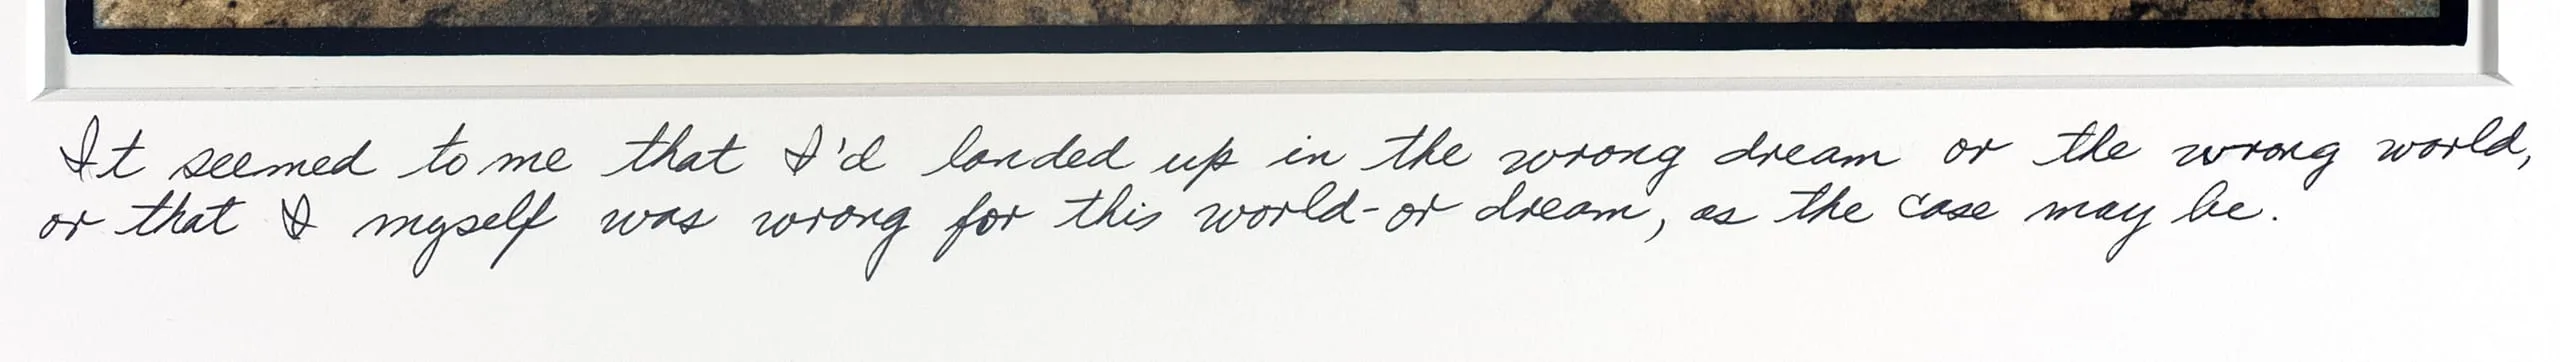 It seemed to me that I'd landed up in the wrong dream or the wrong world,
or that I myself was wrong for this world-or dream, as the case may be.